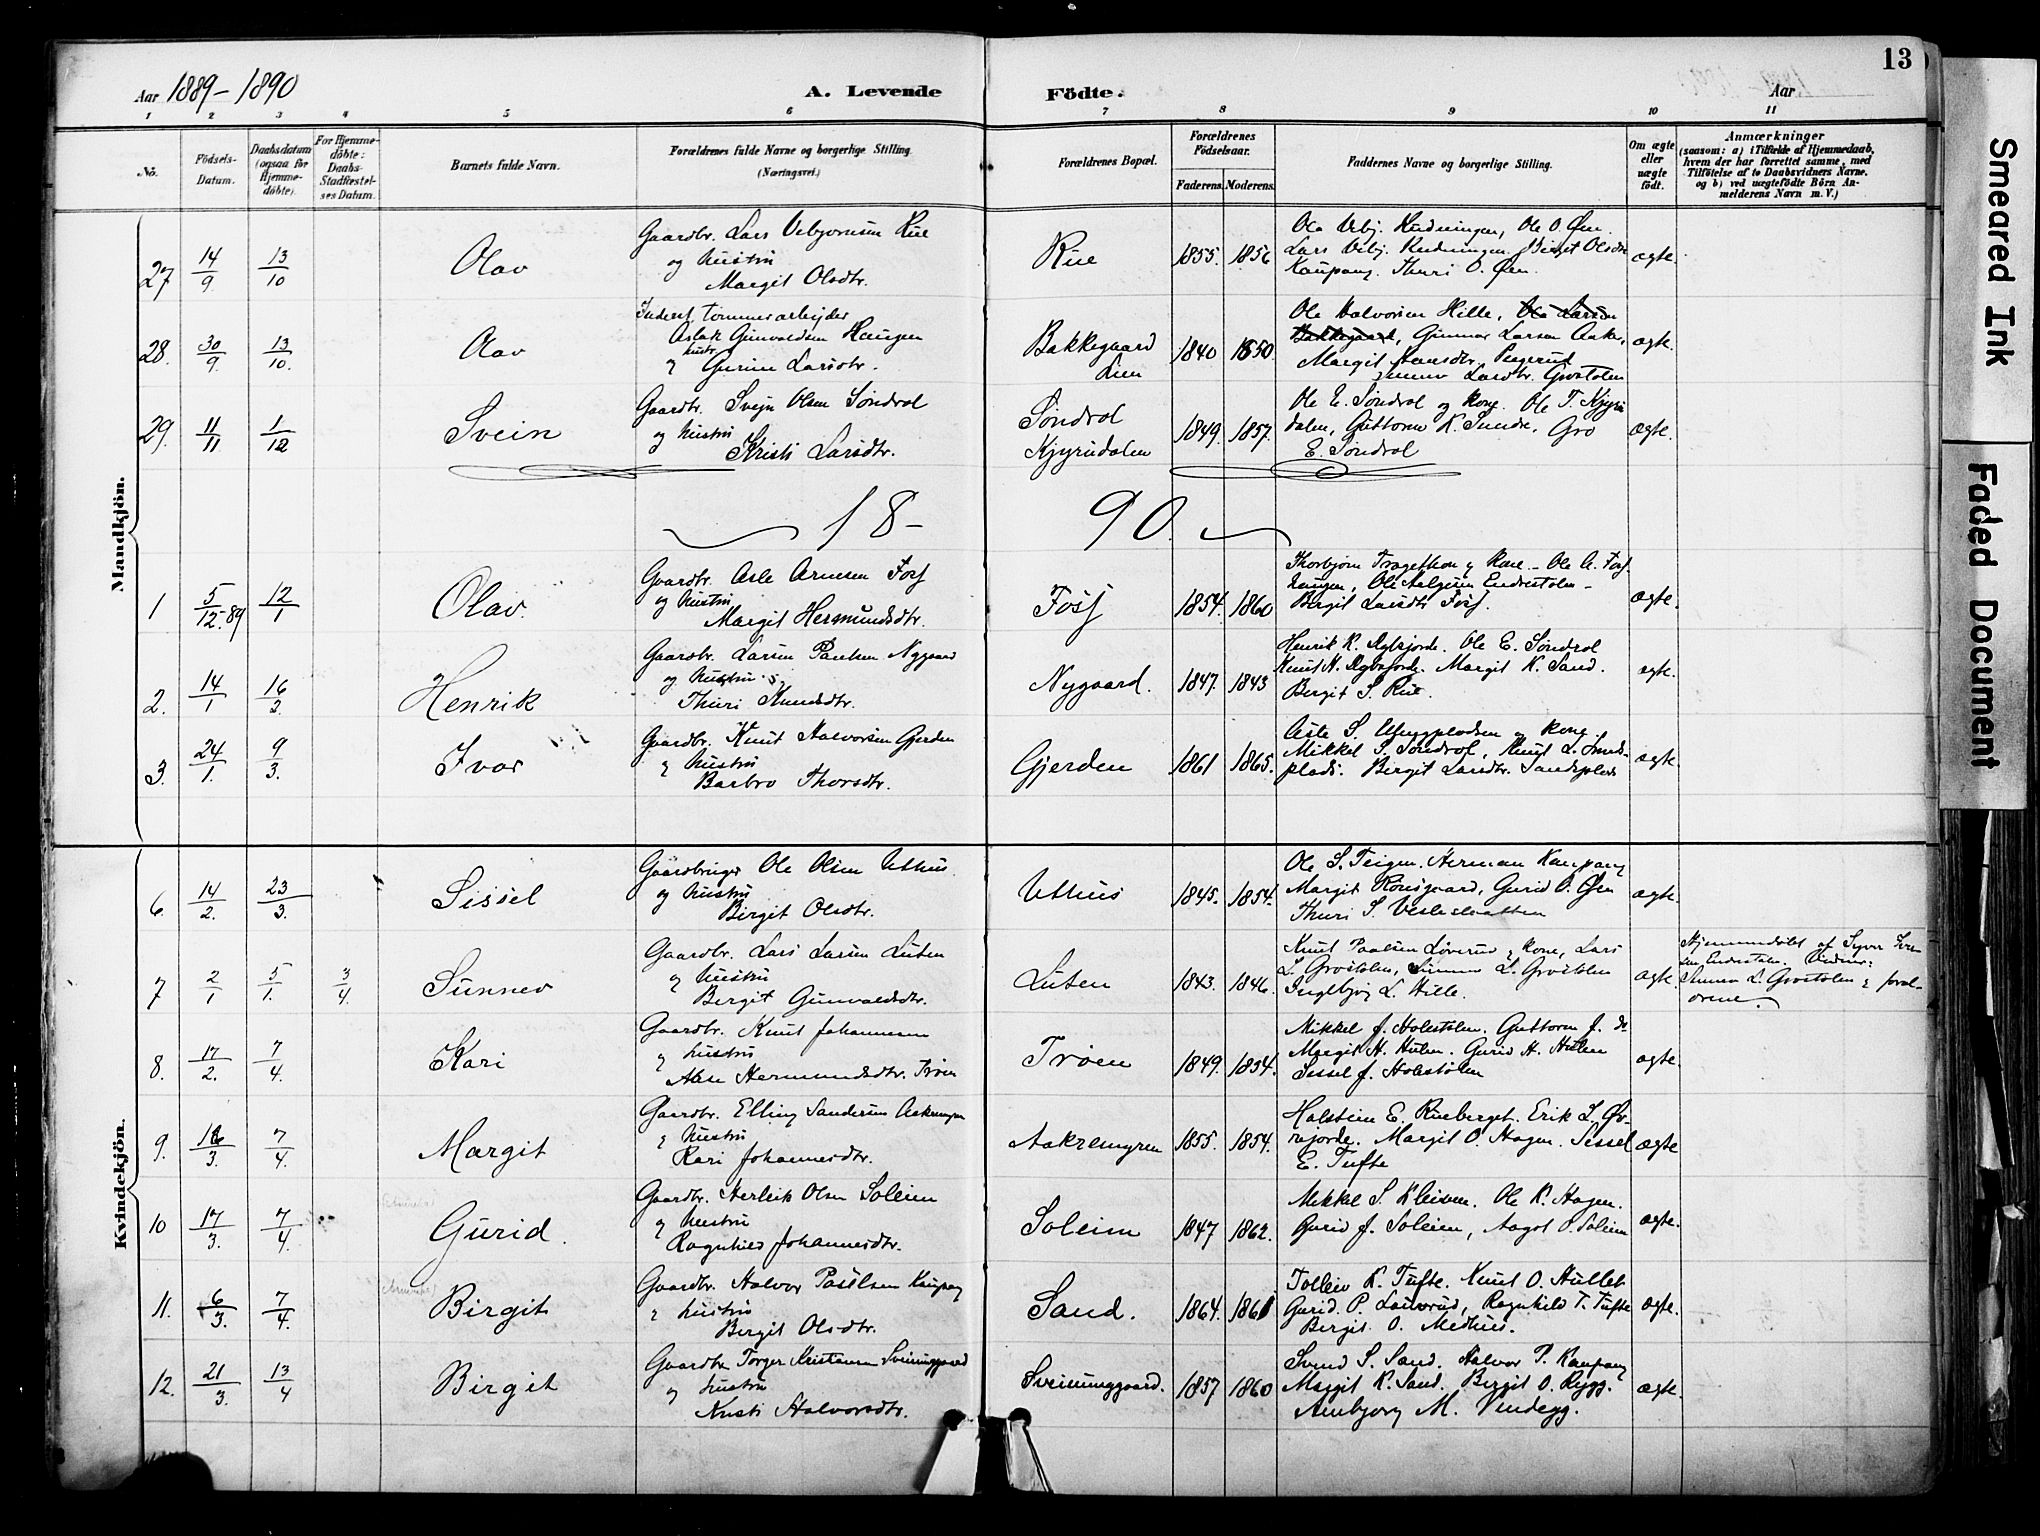 Aar 1889-1890
A. Levende Födte.
Aar
13
1 2 3 4 5 6 7 8 9 10 11
No.
Födsels-Datum.
Daabsdatum (ogsaa for Hjemme-döbte).
For Hjemme-döbte: Daabs-Stadfæstelses Datum.
Barnets fulde Navn.
Forældrenes fulde Navne og borgerlige Stilling. (Næringsvei.)
Forældrenes Bopæl.
Forældrenes Födselsaar.
Faderens. Moderens.
Faddernes Navne og borgerlige Stilling.
Om ægte eller uægte födt.
Anmærkninger (saasom: a) i Tilfælde af Hjemmedaab, hvem der har forrettet samme, med Tilföielse af to Daabsvidners Navne. og b) ved uægtefödte Börn Anmelderens Navn m. V.)
Mandkjön.
27 14/9 13/10 Olav
Gaardbr. Lars Vebjørnsen Rue
og Hustru
Margit Olsdtr.
Rue 1855. 1856
Ola Vebj. Rudningen, Ole O. Øen.
Lars Vebj. Rudningen, Birgit Olsdtr
Kaupang. Thuri O. Øen.
ægte.
28. 30/9 13/10. Aav
Inderst, tømmerarbejder
Aslak Gunvaldsen Haugen
hustr.
og Gurine Larsdtr.
Bakkegaard
Lien 1840 1850.
Ole Halvorsen Hille, Ole Larsen
Bakkegaard, Gunnar Larsen Aaker,
Margit Hansdtr. Pugerud
Larsdtr. Grøstølen
ægte.
29. 11/11 1/12 Svein
Gaardbr. Svejn Olsen Søndrol
og hustru
Kristi Larsdtr.
Søndrol
Kjyrudalen 1849. 1857.
Ole E. Søndrol og Kone. Ole T. Kjyru
dalen, Guttorm K. Sunde, Gro
E. Søndrol
ægte.
18-90.
1 5/12-89 12/1 Olav.
Gaardbr. Asle Arnesen Fosj
og hustru
Margit Hermundsdtr.
Fosj 1854. 1860
Thorbjørn Tragethon og Kone. Ole A. Fosj
haugen, Ole Helgesen Endrestølen
Birgit Larsdtr Fosj.
ægte.
2. 14/1 16/2. Henrik
Gaardbr. Larsen Paulsen Nygaard
og hustru
Thuri Knudsdtr.
Nygaard. 1847. 1843
Henrik K. Rybejorde. Ole E. Søndrol
Knut H. Rybejorde. Margit K. Sand.
Birgit S. Rue.
ægte.
3. 24/1. 9/3. Ivar
Gaardbr. Knut Halvorsen Gjerden
og hustru
Barbro Thorsdtr.
Gjerden 1861 1865.
Asle S. kone.
Mikkel S. Søndrol, Knut L. Sands-
plads. Birgit Larsdtr. Sandsplads
ægte.
Kvindekjön.
6. 14/2. 23/3. Sissel
Gaardbruger Ole Olsen Uthus.
og hustru
Birgit Olsdtr.
Uthus 1845. 1854.
Ole S. Teigen. Herman Kaupang
Margit Ronsgaard, Gurid O. Øen
Thuri S. Vesleslaatten
ægte.
7 2/1 5/1. 3/4. Sunnev
Gaardbr. Lars Larsen Luten
og hustru
Birgit Gunvaldsdtr.
Luten 1843. 1846.
Knut Paulsen Løverud og Kone, Lars
L. Grøstølen, Sunnev L. Grøstølen
Ingebjør L. Hille.
ægte.
Hjemmedøbt af Syver Iver-
sen Endrestølen. Vidner:
Sunnev L. Grøstølen & foræl-
drene.
8. 17/2. 7/4. Kari
Gaardbr. Knut Johannesen
og hustru
Aase Hermundsdtr. Trøen
Trøen 1849. 1854.
Mikkel J. Holestølen. Guttorm J. do
Margit H. Hulen. Gurid H. Hulen
Sissel J. Holestølen
ægte.
9. 16/3. 7/4. Margit
Gaardbr. Elling Sandersen Aakremyren
og hustru
Kari Johannesdtr.
Aakremyren 1855. 1854.
Halstein E. Rueberget. Erik L. Øv-
rejorde. Margit O. Hagen. Sissel
E. Tufte
ægte
10 17/3. 7/4. Gurid.
Gaardbr. Herleik Olsen Soleim
og hustru
Ragnhild Johannesdtr.
Soleim 1847 1862.
Mikkel S. Kleiven. Ole K. Hagen.
Gurid J. Soleim, Aagot O. Soleim
ægte.
11. 6/3. 7/4. Birgit
Gaardbr. Halvor Paulsen Kaupang
og hustru
Birgit Olsdtr.
Sand. 1864. 1861
Tolleiv K. Tufte. Knut O. Hullet
Gurid P. Lauvrud, Ragnhild T. Tufte
Birgit O. Medhus.
ægte.
12. 21/3. 13/4 Birgit
Gaardbr Torger Kristensen Sveinunggaard
og hustru
Kristi Halvorsdtr.
Sveinunggaard. 1857 1860
Svend S. Sand. Halvor P. Kaupang
Margit K. Sand. Birgit O. Rygg.
Anbjørg M. Vindegg.
ægte.
Smeared Ink
Faded Document